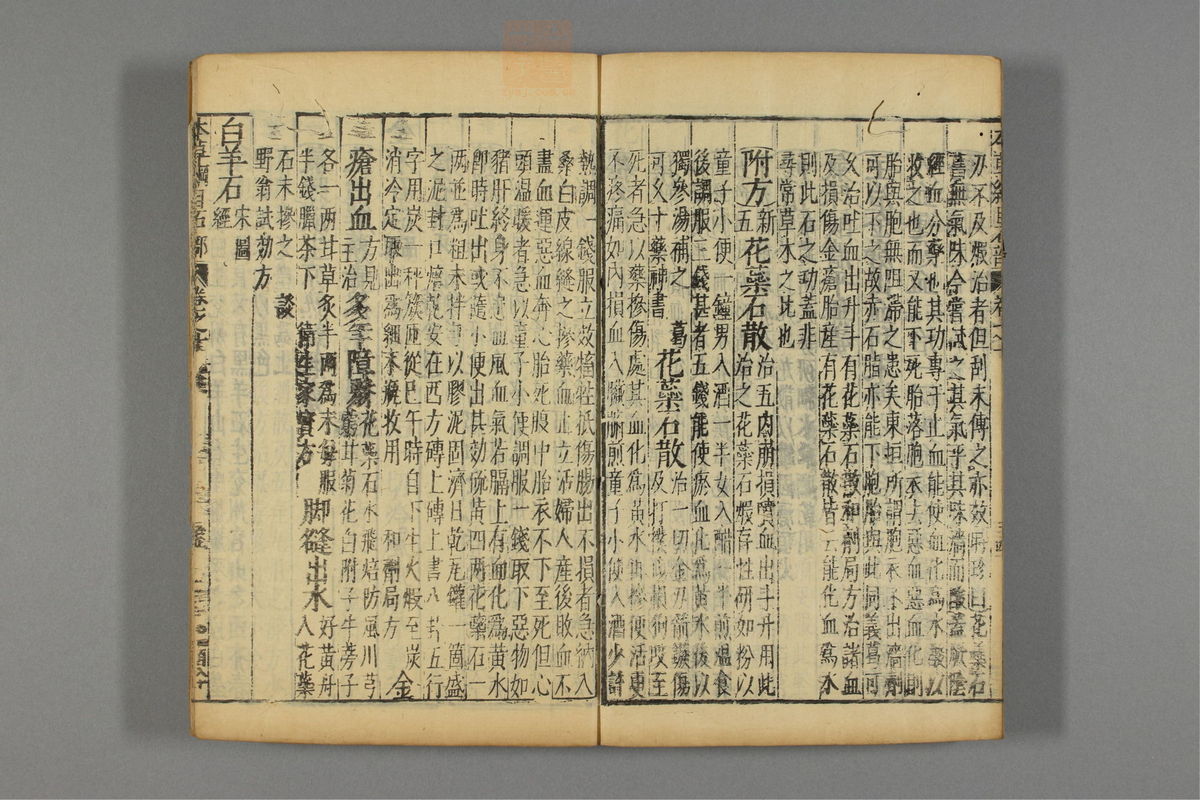 刃不及煅治者但刮末傅之亦效時珍曰花蘂石
舊無氣味今嘗試之其氣平其味濇而酸蓋厥陰
經血分藥也其功專于止血能使血化爲水酸以
收之也而又能下死胎落胞衣去惡血惡血化則
胎與胞無阻滯之患矣東垣所謂胞衣不出濇劑
可以下之故赤石脂亦能下胞胎與此同義葛可
久治吐血出升斗有花蘂石散和劑局方治諸血
及損傷金瘡胎産有花蘂石散皆云能化血爲水
則此石之功蓋非
尋常草木之比也
附方新五花蘂石散治五内崩損噴血出斗升用此
治之花蘂石煅存性研如粉以
童子小便一鍾男入酒一半女入醋一半煎温食
後調服三錢甚者五錢能使瘀血化爲黃水後以
獨參湯補之　葛
可久十藥神書花蘂石散治一切金刃箭鏃傷
及打撲傷損狗咬至
死者急以藥摻傷處其血化爲黃水再摻便活更
不疼痛如内損血入臟腑煎童子小便入酒少許
熱調一錢服立效畜牲抵傷腸出不損者急納入
桑白皮線縫之摻藥血止立活婦人産後敗血不
盡血運惡血奔心胎死腹中胎衣不下至死但心
頭温暖者急以童子小便調服一錢取下惡物如
豬肝終身不患血風血氣若膈上有血化爲黃水
即時吐出或隨小便出其效硫黃四兩花蘂石一
兩並爲粗末拌匀以膠泥固濟日乾瓦罐一箇盛
之泥封口焙乾安在四方磚上磚上書八卦五行
字用炭一秤簇匝從巳午時自下生火煅至炭
消冷定取出爲細末瓶收用　和劑局方　金
瘡出血方見
主治多年障翳花蘂石水飛焙防風川芎
甘菊花白附子牛蒡子
各一兩甘草炙半兩爲末每服
半錢臘茶下　衛生家寶方脚縫出水好黃丹
入花蘂
石末摻之　談
野翁試効方
白羊石宋圖
經
本草綱目石部　卷之十